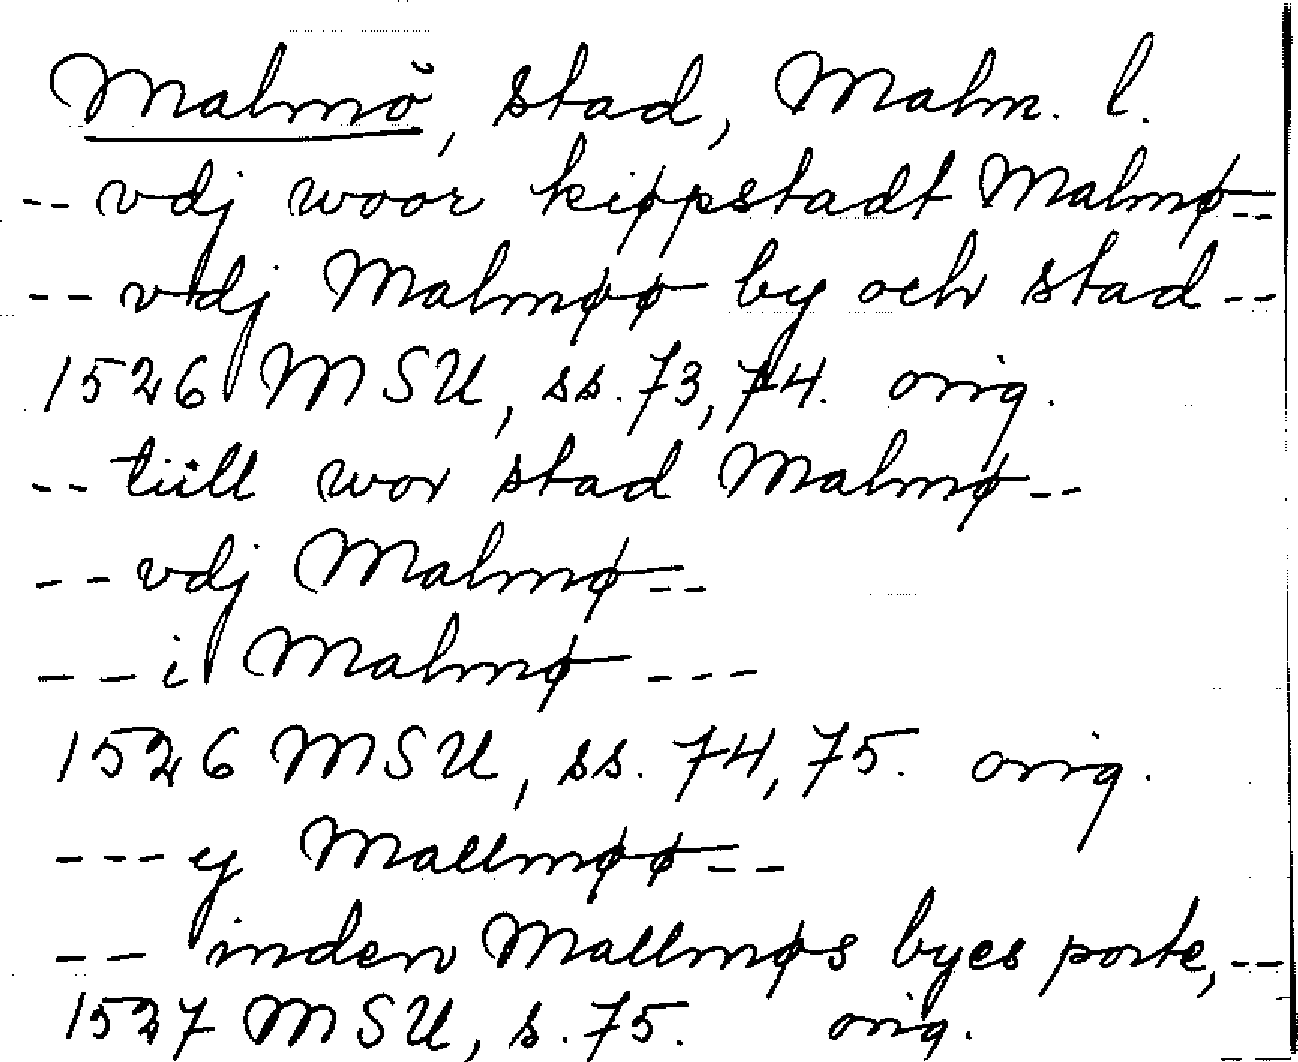 Malmö, stad, Malm. l.
-- vdj woor kiøpstadt Malmø --
-- vdj Malmøø by och stad --
1526 MSU, ss. 73, 74. orig.
-- tiill wor stad Malmø --
-- vdj Malmø --
-- i Malmø ---
1526 MSU, ss. 74, 75. orig.
--- y Mallmøø --
-- inden Mallmøs byes porte, --
1527 MSU, s. 75. orig.